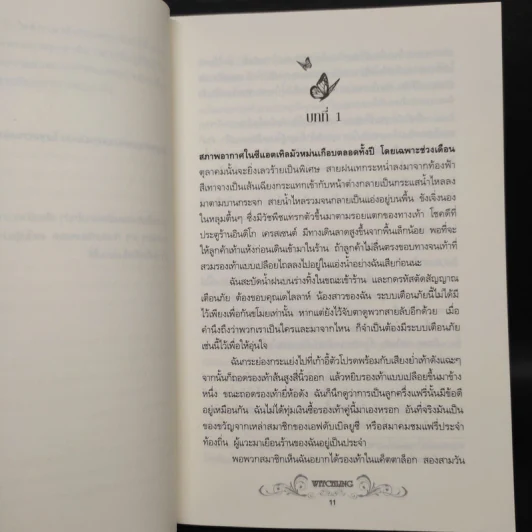 บทที่ 1
สภาพอากาศในซีแอตเทิลมัวหม่นเกือบตลอดทั้งปี โดยเฉพาะช่วงเดือน
ตุลาคมนั้นจะยิ่งเลวร้ายเป็นพิเศษ สายฝนเทกระหน่ำลงมาจากท้องฟ้า
สีเทาจางเป็นเส้นเฉียงกระแทกเข้ากับหน้าต่างกลายเป็นกระแสน้ำไหลลง
มาตามบานกระจก สายน้ำไหลรวมจนกลายเป็นแอ่งอยู่บนพื้น ขังเจิ่งนอง
ในหลุมตื้นๆ ซึ่งมีวัชพืชแทรกตัวขึ้นมาตามรอยแตกของทางเท้า โชคดีที่
ประตูร้านอินดิโก เครสเซนต์ มีทางเดินลาดสูงขึ้นจากพื้นเล็กน้อย พอที่จะ
ให้ลูกค้าเท้าแห้งก่อนเดินเข้ามาในร้าน ถ้าลูกค้าไม่ลื่นตรงขอบทางจนเท้าที่
สวมรองเท้าแบบเปลือยไถลลงไปอยู่ในแอ่งน้ำอย่างฉันเสียก่อนนะ
ฉันสะบัดน้ำฝนบนร่างทิ้งในขณะเข้าร้าน และกดรหัสตัดสัญญาณ
เตือนภัย ต้องขอบคุณเดไลลาห์ น้องสาวของฉัน ระบบเตือนภัยนี้ไม่ได้มี
ไว้เพียงเพื่อกันขโมยเท่านั้น หากแต่ยังไว้จับตาดูพวกสายลับอีกด้วย เมื่อ
คำนึงถึงว่าพวกเราเป็นใครและมาจากไหน ก็จำเป็นต้องมีระบบเตือนภัย
เช่นนี้ไว้เพื่อให้อุ่นใจ
ฉันกระย่องกระแย่งไปที่เก้าอี้ตัวโปรดพร้อมกับเสียงย่ำเท้าดังแฉะๆ
จากนั้นก็ถอดรองเท้าส้นสูงสี่นิ้วออก แล้วหยิบรองเท้าแบบเปลือยขึ้นมาข้าง
หนึ่ง ขณะถอดรองเท้ายี่ห้อดัง ฉันก็นึกดูว่าการเป็นลูกครึ่งแฟรี่นั้นมีข้อดี
อยู่เหมือนกัน ฉันไม่ได้ทุ่มเงินซื้อรองเท้าคู่นี้มาเองหรอก อันที่จริงมันเป็น
ของขวัญจากเหล่าสมาชิกของเอฟดับเบิลยูซี หรือสมาคมชมแฟรี่ประจำ
ท้องถิ่น ผู้แวะมาเยือนร้านของฉันอยู่เป็นประจำ
พอพวกสมาชิกเห็นฉันอยากได้รองเท้าในแค็ตตาล็อก สองสามวัน
WITCHLING
11